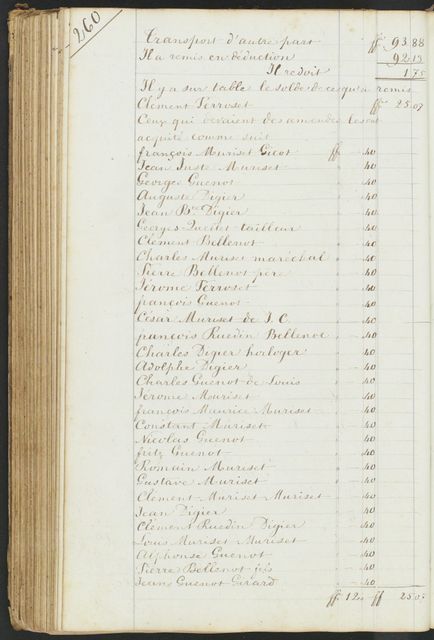 260
Transport d'autre part ff 93.88
Il a remis en déduction 92.13
Il redoit 1.75
Il y a sur table le solde de ce qu'a remis
Clement Perroset ff 25.07
Ceux qui devaient des amendes les ont
acquité comme suit
françois Muriset Gicot ff -40
Jean Juste Muriset " -40
George Guenot " -40
Auguste Digier " -40
Jean Bte Digier " -40
Georges Quellet tailleur " -40
Clement Bellenot " -40
Charles Muriset maréchal " -40
Pierre Bellenot père " -40
Jérome Perroset " -40
françois Guenot " -40
César Muriset de J. C. " -40
françois Ruedin Bellenot " -40
Charles Digier horloger " -40
Adolphe Digier " -40
Charles Guenot de Louis " -40
Jérome Muriset " -40
françois Maurice Muriset " -40
Constant Muriset " -40
Nicolas Guenot " -40
fritz Guenot " -40
Romain Muriset " -40
Gustave Muriset " -40
Clement Muriset Muriset " -40
Jean Digier " -40
Clement Ruedin Digier " -40
Louis Muriset Muriset " -40
Alphonse Guenot " -40
Pierre Bellenot fils " -40
Jeans Guenot Girard " -40
ff 12 " ff